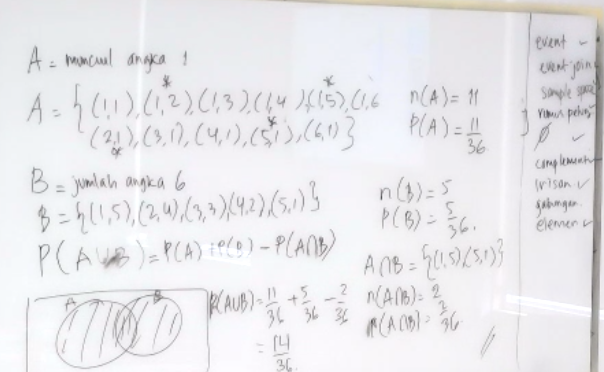 A = muncul angka 1
A = {(1,1), (1,2), (1,3), (1,4), (1,5), (1,6
(2,1), (3,1), (4,1), (5,1), (6,1)}
n(A) = 11
P(A) = 11/36
B = jumlah angka 6
B = {(1,5), (2,4), (3,3), (4,2), (5,1)}
n(B) = 5
P(B) = 5/36.
P(A∪B) = P(A) + P(B) - P(A∩B)
A∩B = {(1,5), (5,1)}
n(A∩B) = 2
P(A∩B) = 2/36.
A B
P(A∪B) = 11/36 + 5/36 - 2/36
= 14/36.
event ✓
event join
sample space
rumus peluang
∅ ✓
complement ✓
irisan ✓
gabungan.
elemen ✓